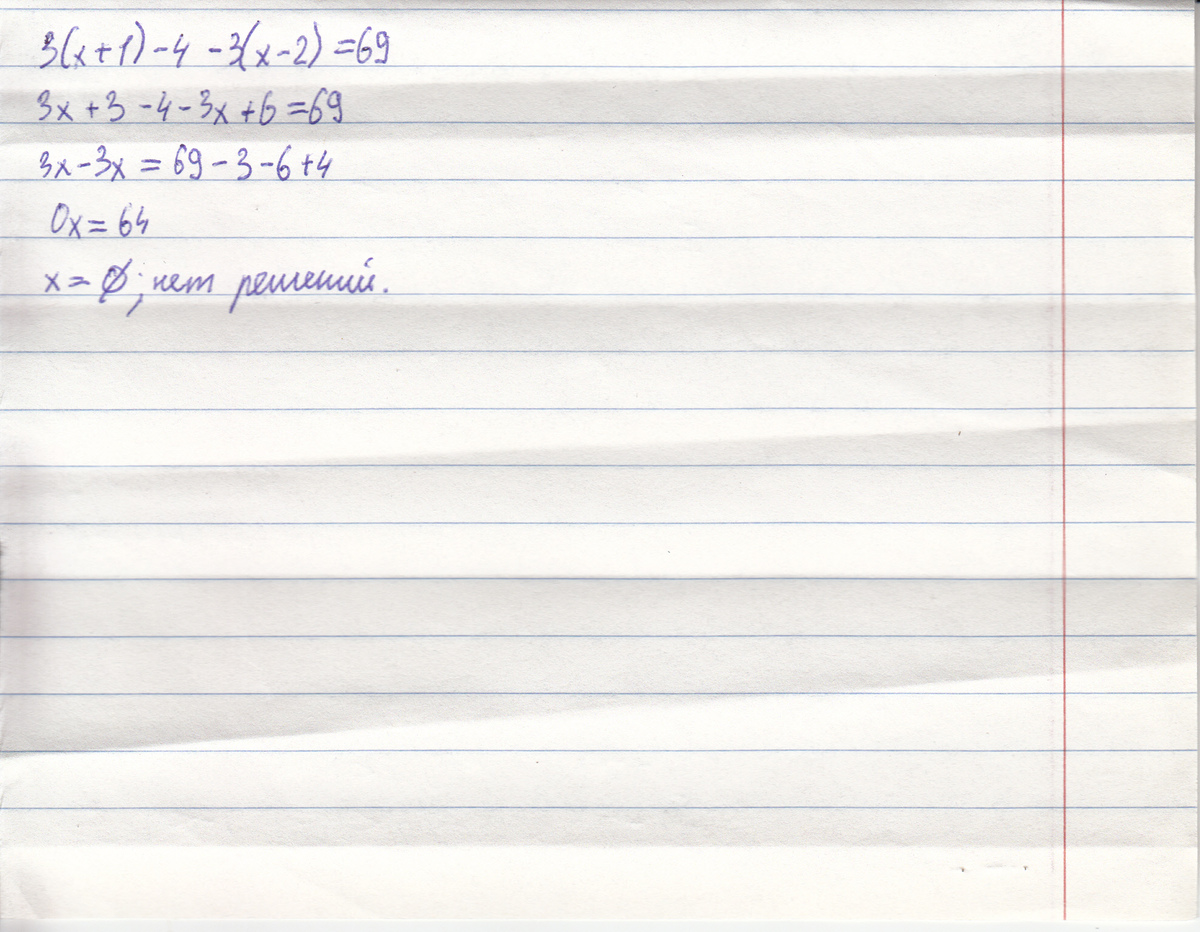 3(x+1)-4 -3(x-2)=69
3x+3-4-3x+6=69
3x-3x=69-3-6+4
0x=64
x=∅; нет решений.